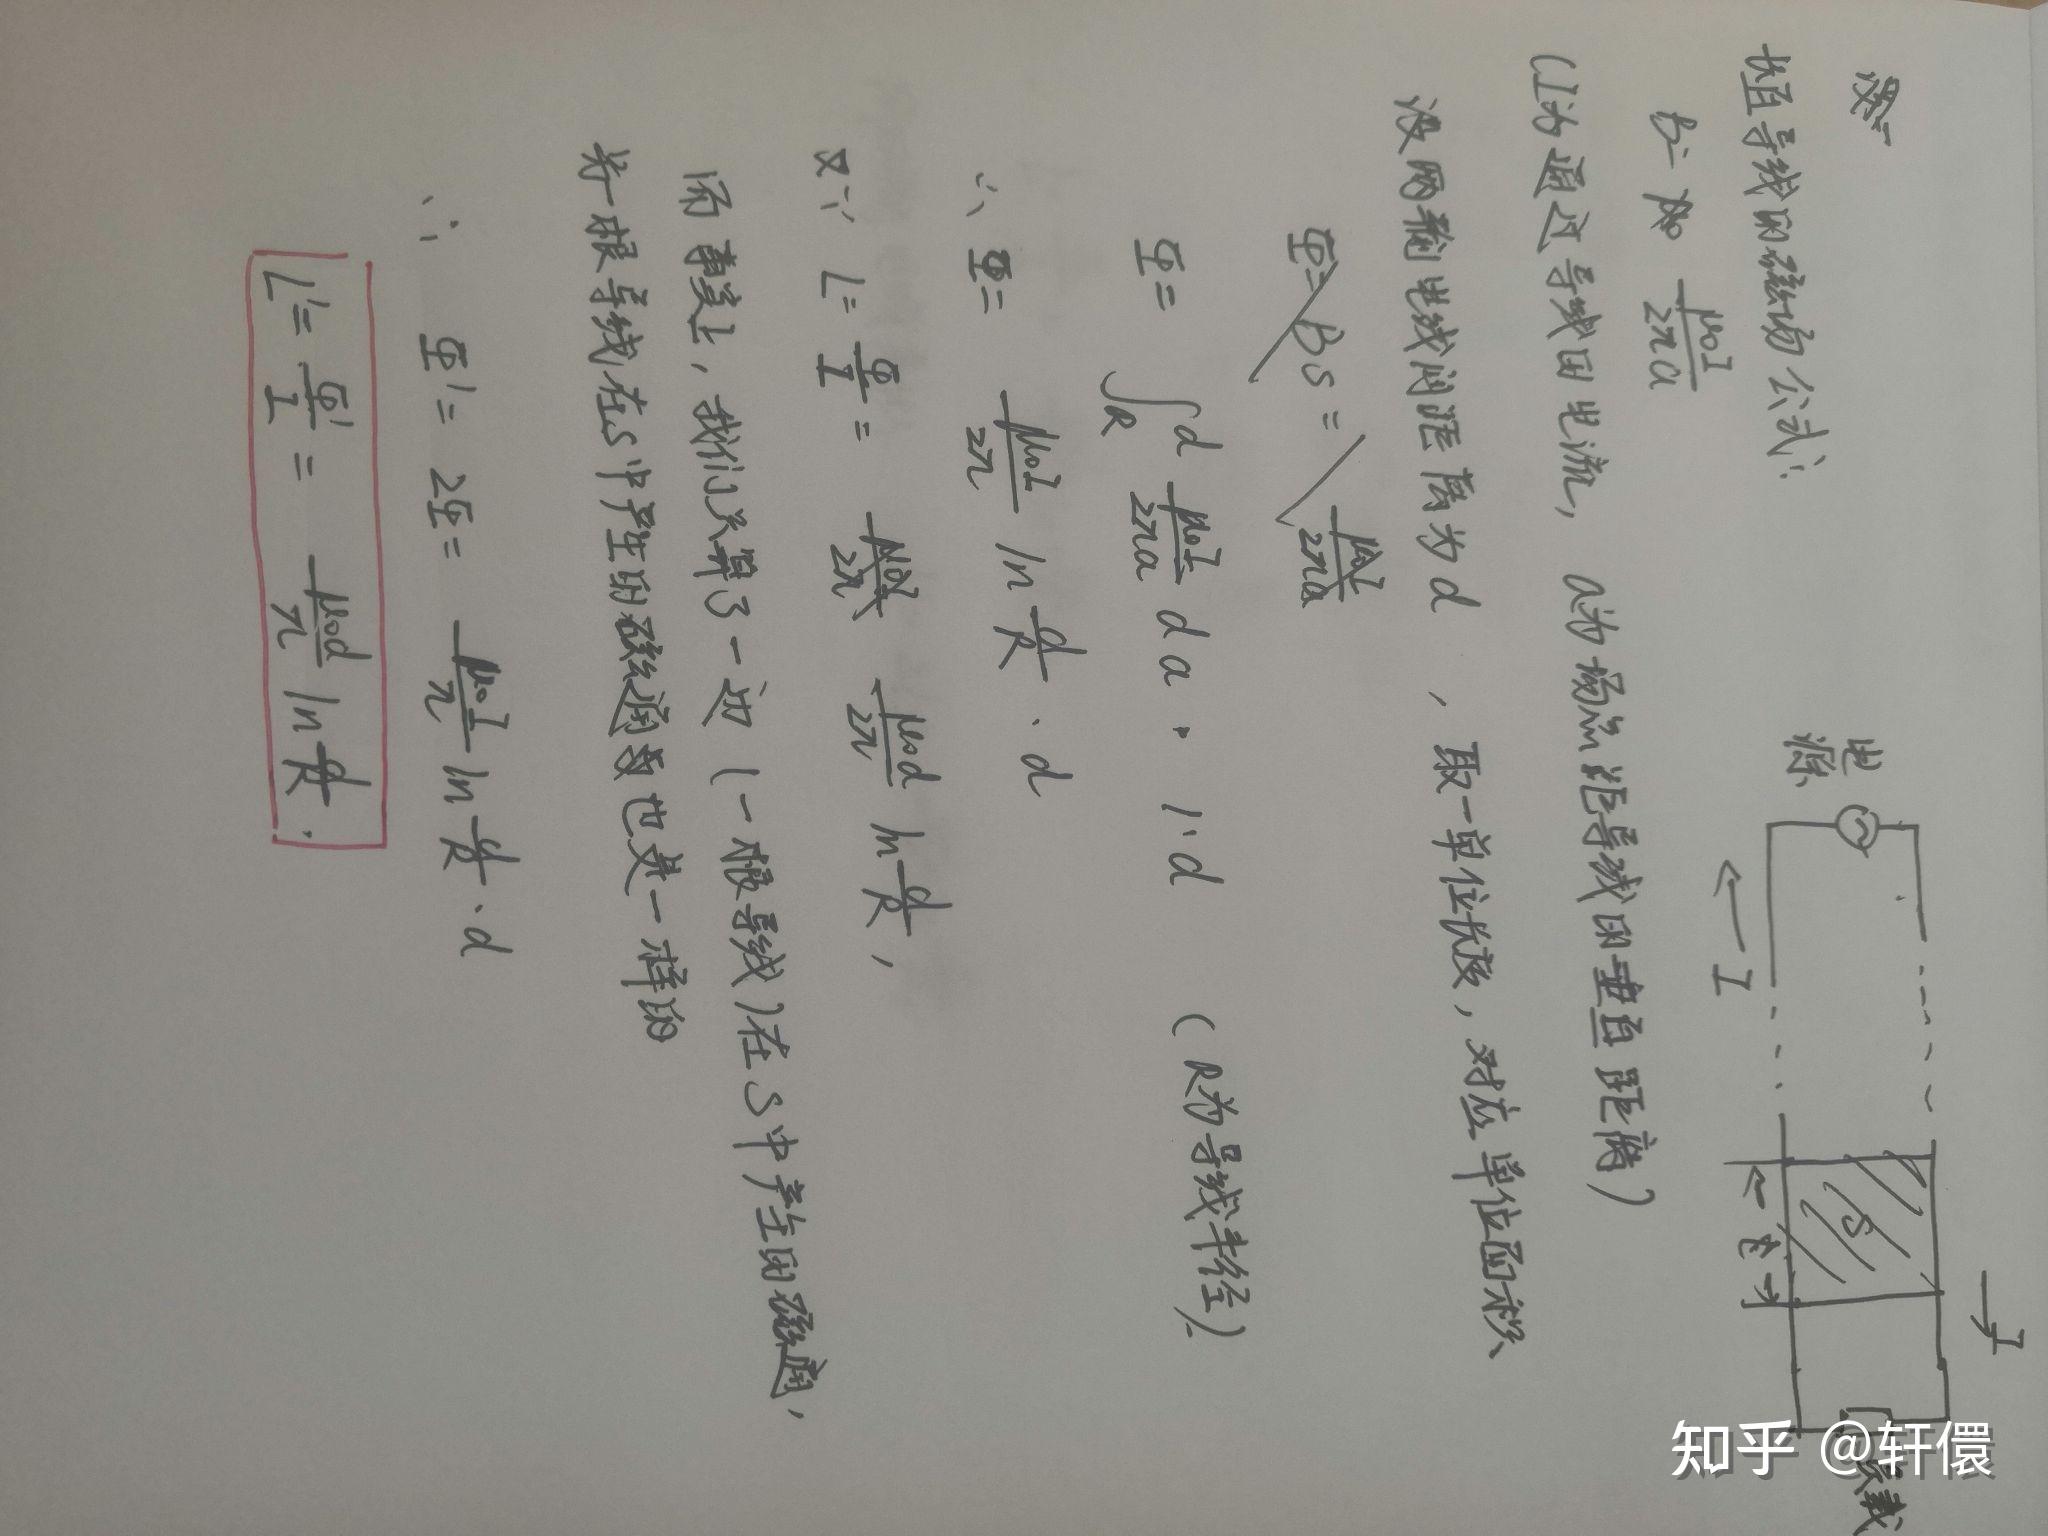 长直导线的磁场公式:
B= μ₀I/2πa
(I为通过导线的电流, a为场点距导线的垂直距离)
电源
I
S
I
负载
设两输电线间距离为d, 取一单位长度, 对应单位面积
Φ= BS = μ₀I/2πa
Φ= ∫_R^d μ₀I/2πa da · 1·d (R为导线半径)
∴ Φ= μ₀I/2π ln d/R · d
又∵ L= Φ/I = μ₀I/2π μ₀d/2π ln d/R,
而事实上, 我们只算了一边(一根导线)在S中产生的磁通,
另一根导线在S中产生的磁通量也是一样的
∴ Φ'= 2Φ= μ₀I/π ln d/R · d
L'= Φ'/I = μ₀d/π ln d/R.
知乎 @轩儇